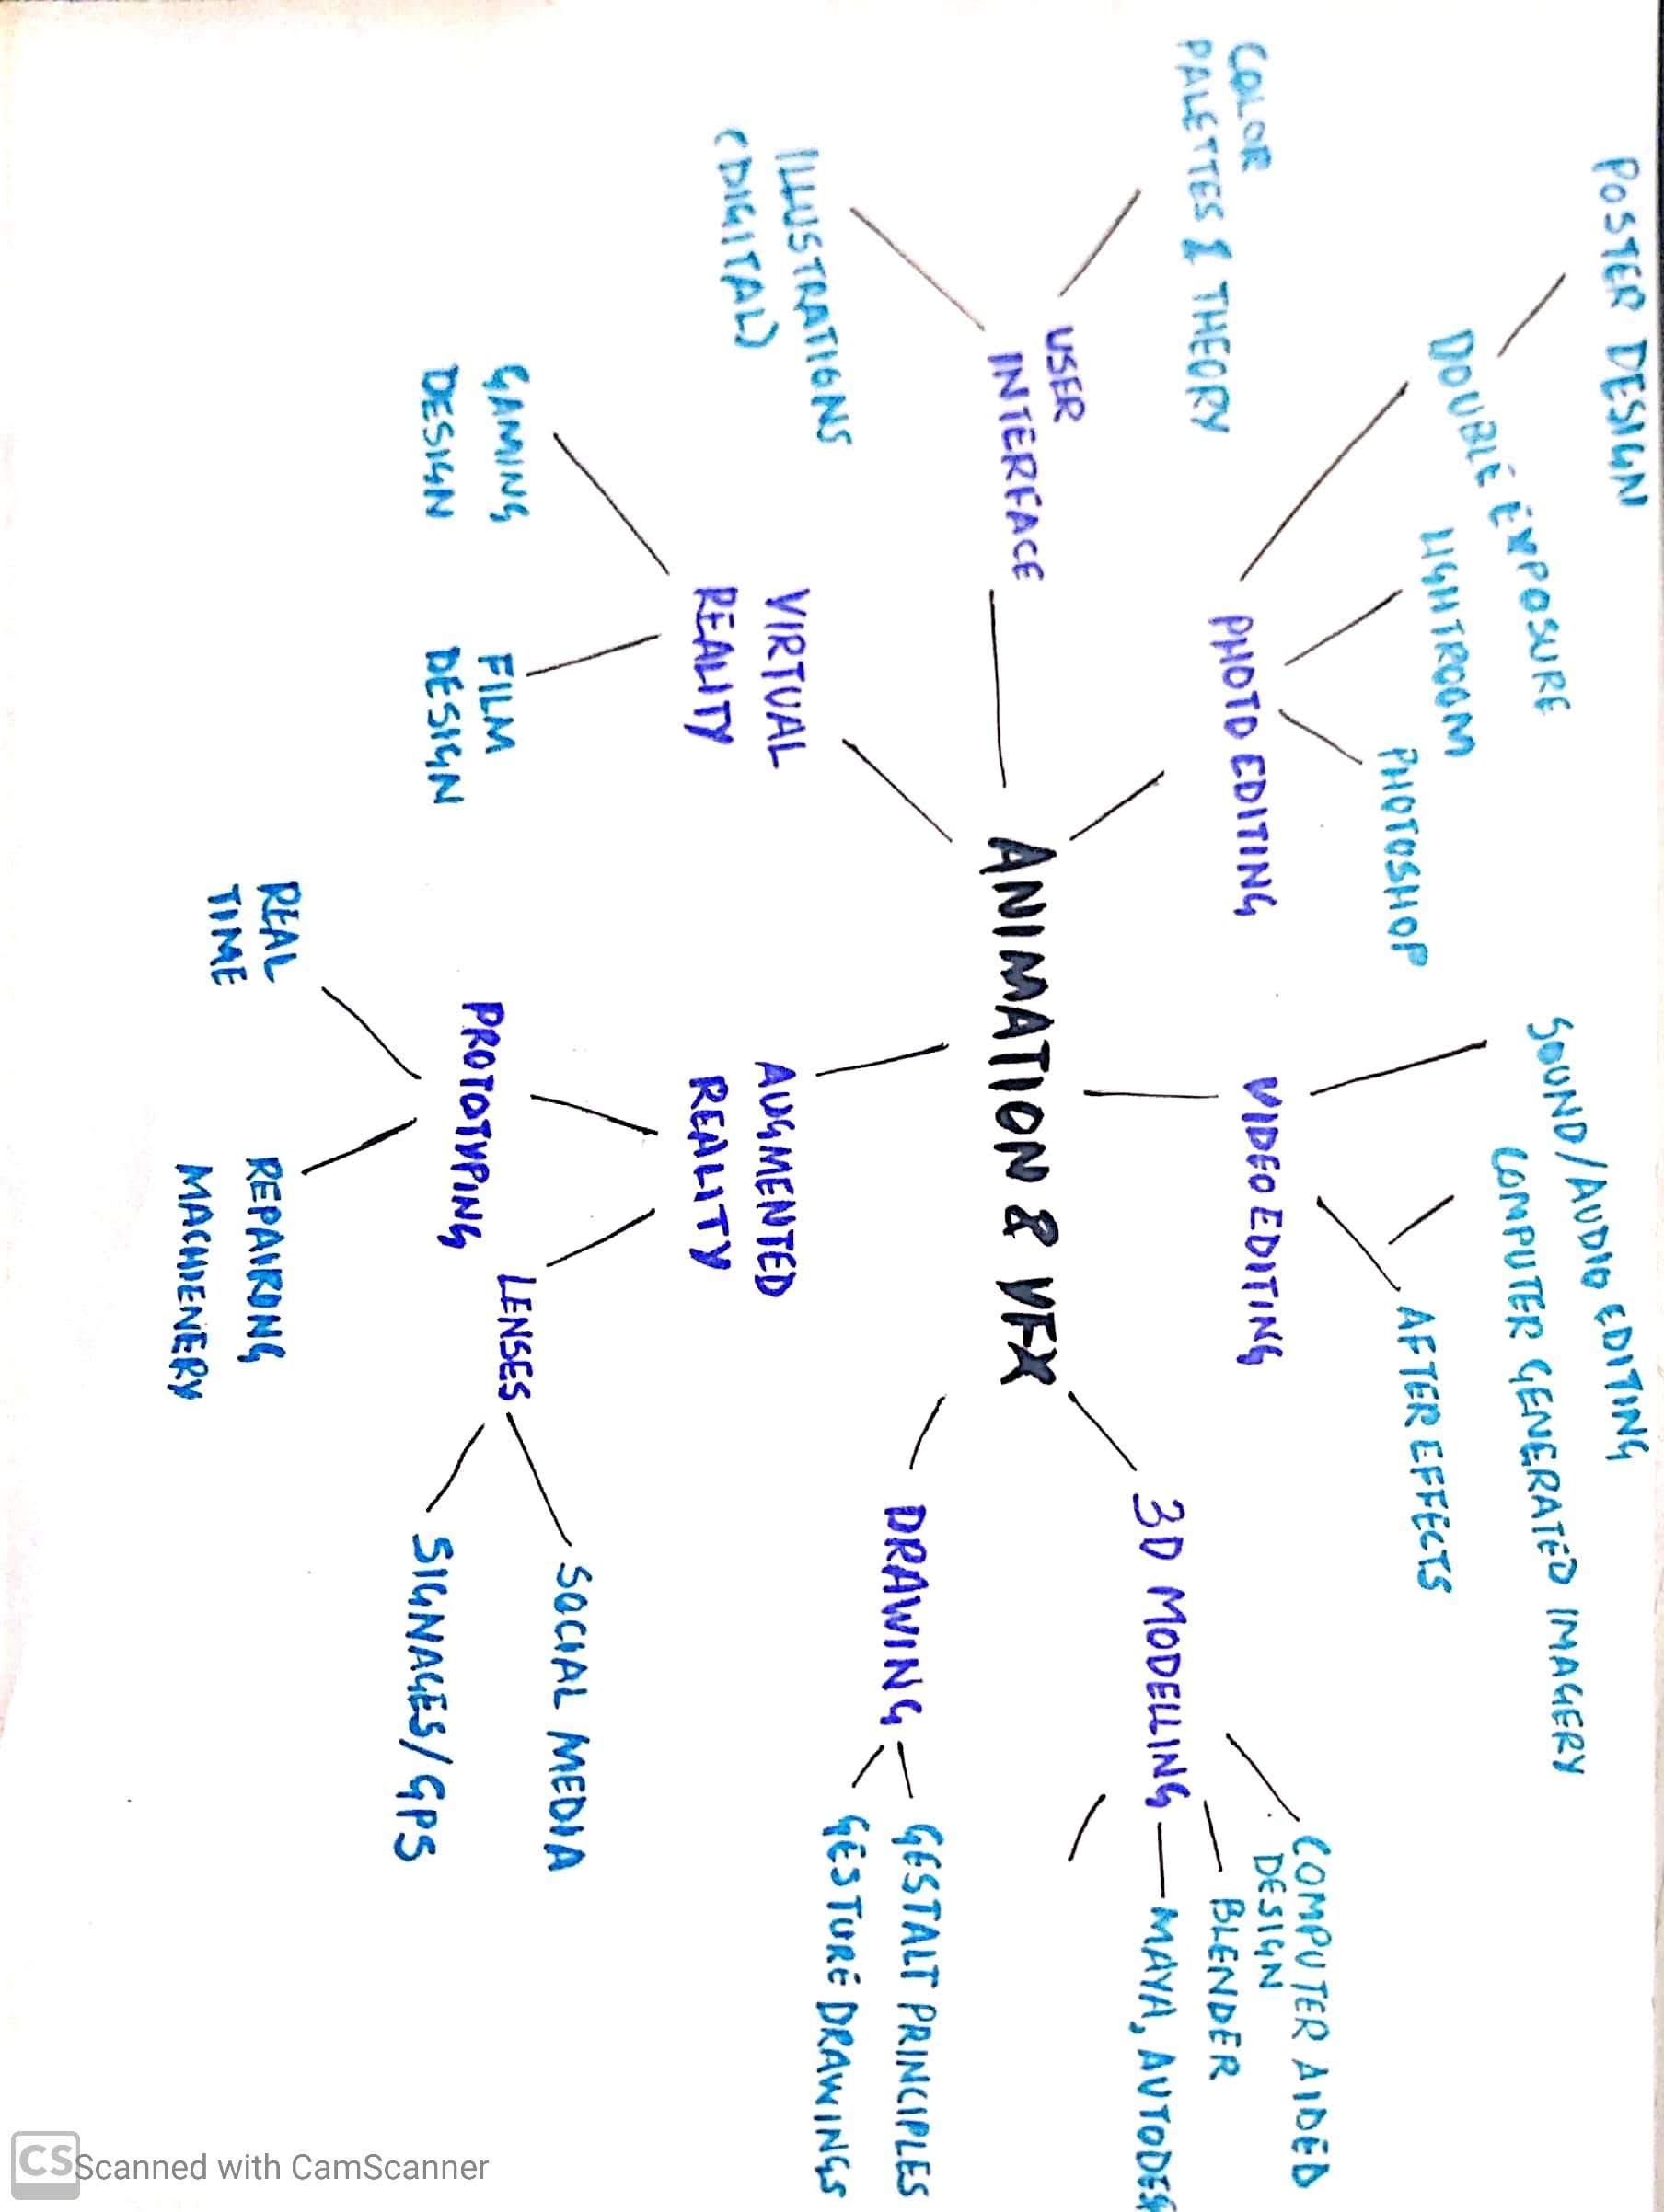 POSTER DESIGN
DOUBLE EXPOSURE
LIGHTROOM
PHOTOSHOP
PHOTO EDITING
COLOR
PALETTES & THEORY
USER
INTERFACE
ILLUSTRATIONS
(DIGITAL)
VIRTUAL
REALITY
GAMING
DESIGN
FILM
DESIGN
ANIMATION & VFX
SOUND/AUDIO EDITING
COMPUTER GENERATED IMAGERY
AFTER EFFECTS
VIDEO EDITING
3D MODELLING
COMPUTER AIDED
DESIGN
BLENDER
MAYA, AUTODES
DRAWING
GESTALT PRINCIPLES
GESTURE DRAWINGS
AUGMENTED
REALITY
PROTOTYPING
REAL
TIME
REPAIRING
MACHIENERY
LENSES
SOCIAL MEDIA
SIGNAGES/GPS
CS Scanned with CamScanner